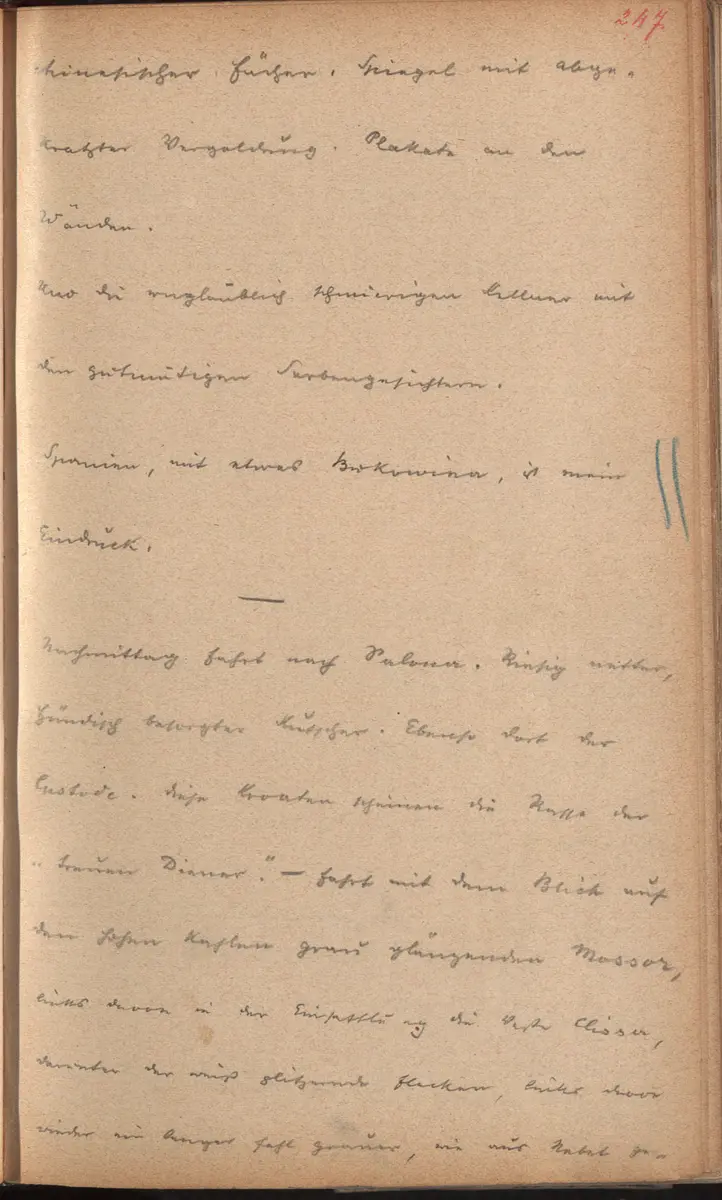 247
chinesischer Fächer. Spiegel mit abge-
kratzter Vergoldung. Plakate an den
Wänden.
Und die unglaublich schmierigen Cellner mit
den gutmütigen Serbengesichtern.
Spanien, mit etwas Bukowina, ist mein
Eindruck.
Nachmittag Fahrt nach Salona. Riesig netter,
hündisch besorgter Kutscher. Ebenso dort der
Custode. Diese Kroaten scheinen die Rasse der
"treuen Diener". – Fahrt mit dem Blick auf
den hohen kahlen grau glänzenden Mossor,
links davon in der Einsattlung die Veste Clissa,
darunter der weiß glitzernde Flecken, links davon
wieder ein langer fahl grauer, wie aus Nebel ge-